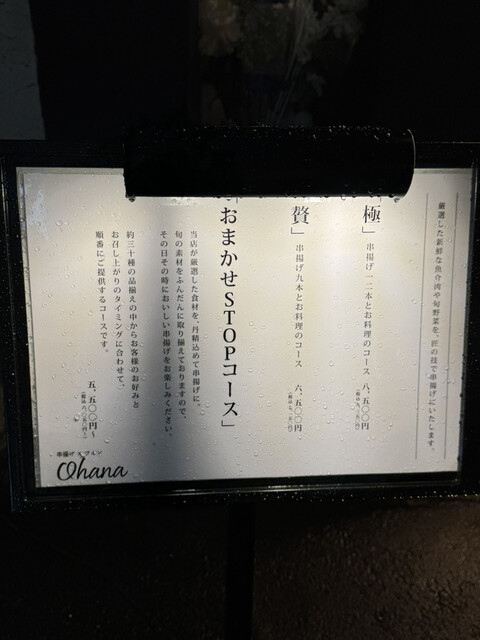 厳選した新鮮な魚介肉や旬野菜を、匠の技で串揚げにいたします。
極」 串揚げ一二本とお料理のコース 八、五〇〇円
贅」 串揚げ九本とお料理のコース 六、五〇〇円
「おまかせSTOPコース」
当店が厳選した食材を、丹精込めて串揚げに。
旬の素材をふんだんに取り揃えておりますので、
その日その時においしい串揚げをお楽しみください。
約三十種の品揃えの中からお客様のお好みと
お召し上がりのタイミングに合わせて、
順番にご提供するコースです。
五、五〇〇円～
串揚げ×ワイン
Ohana